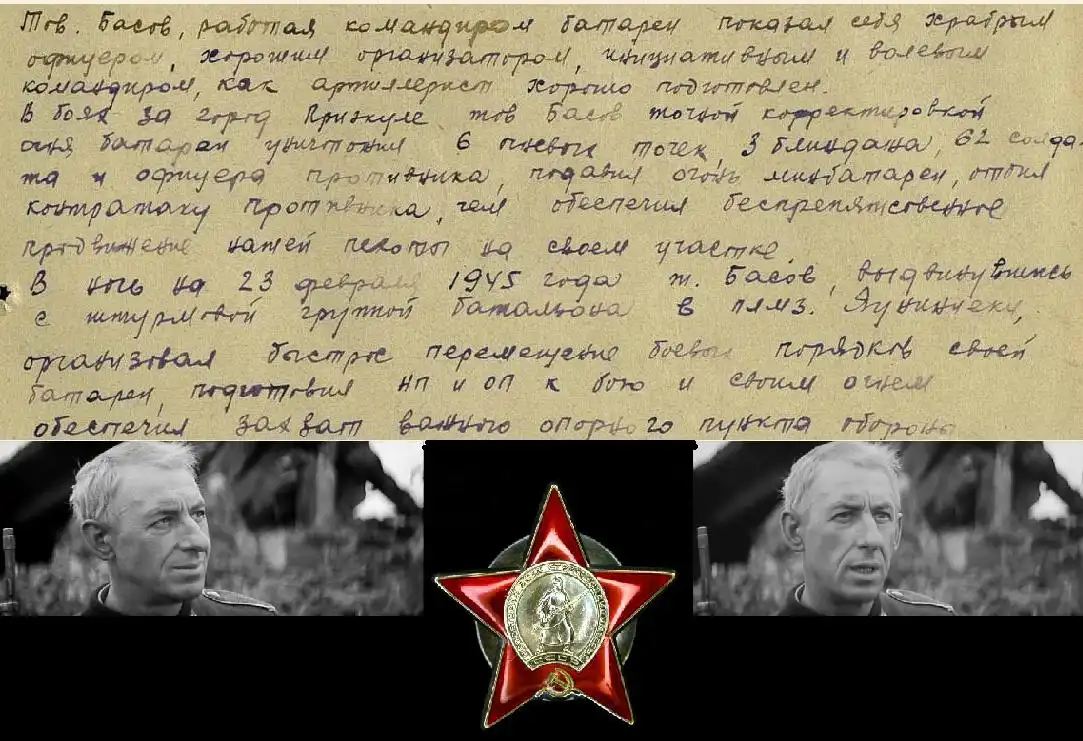 Тов. Басов, работая командиром батареи показал себя храбрым
офицером, хорошим организатором, инициативным и волевым
командиром, как артиллерист хорошо подготовлен.
В боях за город Приекуле тов Басов точной корректировкой
огня батареи уничтожил 6 огневых точек, 3 блиндажа, 62 солда-
та и офицера противника, подавил огонь минбатареи, отбил
контратаку противника, чем обеспечил беспрепятственное
продвижение нашей пехоты на своем участке.
В ночь на 23 февраля 1945 года т. Басов, выдвинувшись
с штурмовой группой батальона в
организовал быстрое перемещение боевых порядков своей
батареи, подготовил НП и ОП к бою и своим огнем
обеспечил захват важного опорного пункта обороны
СССР